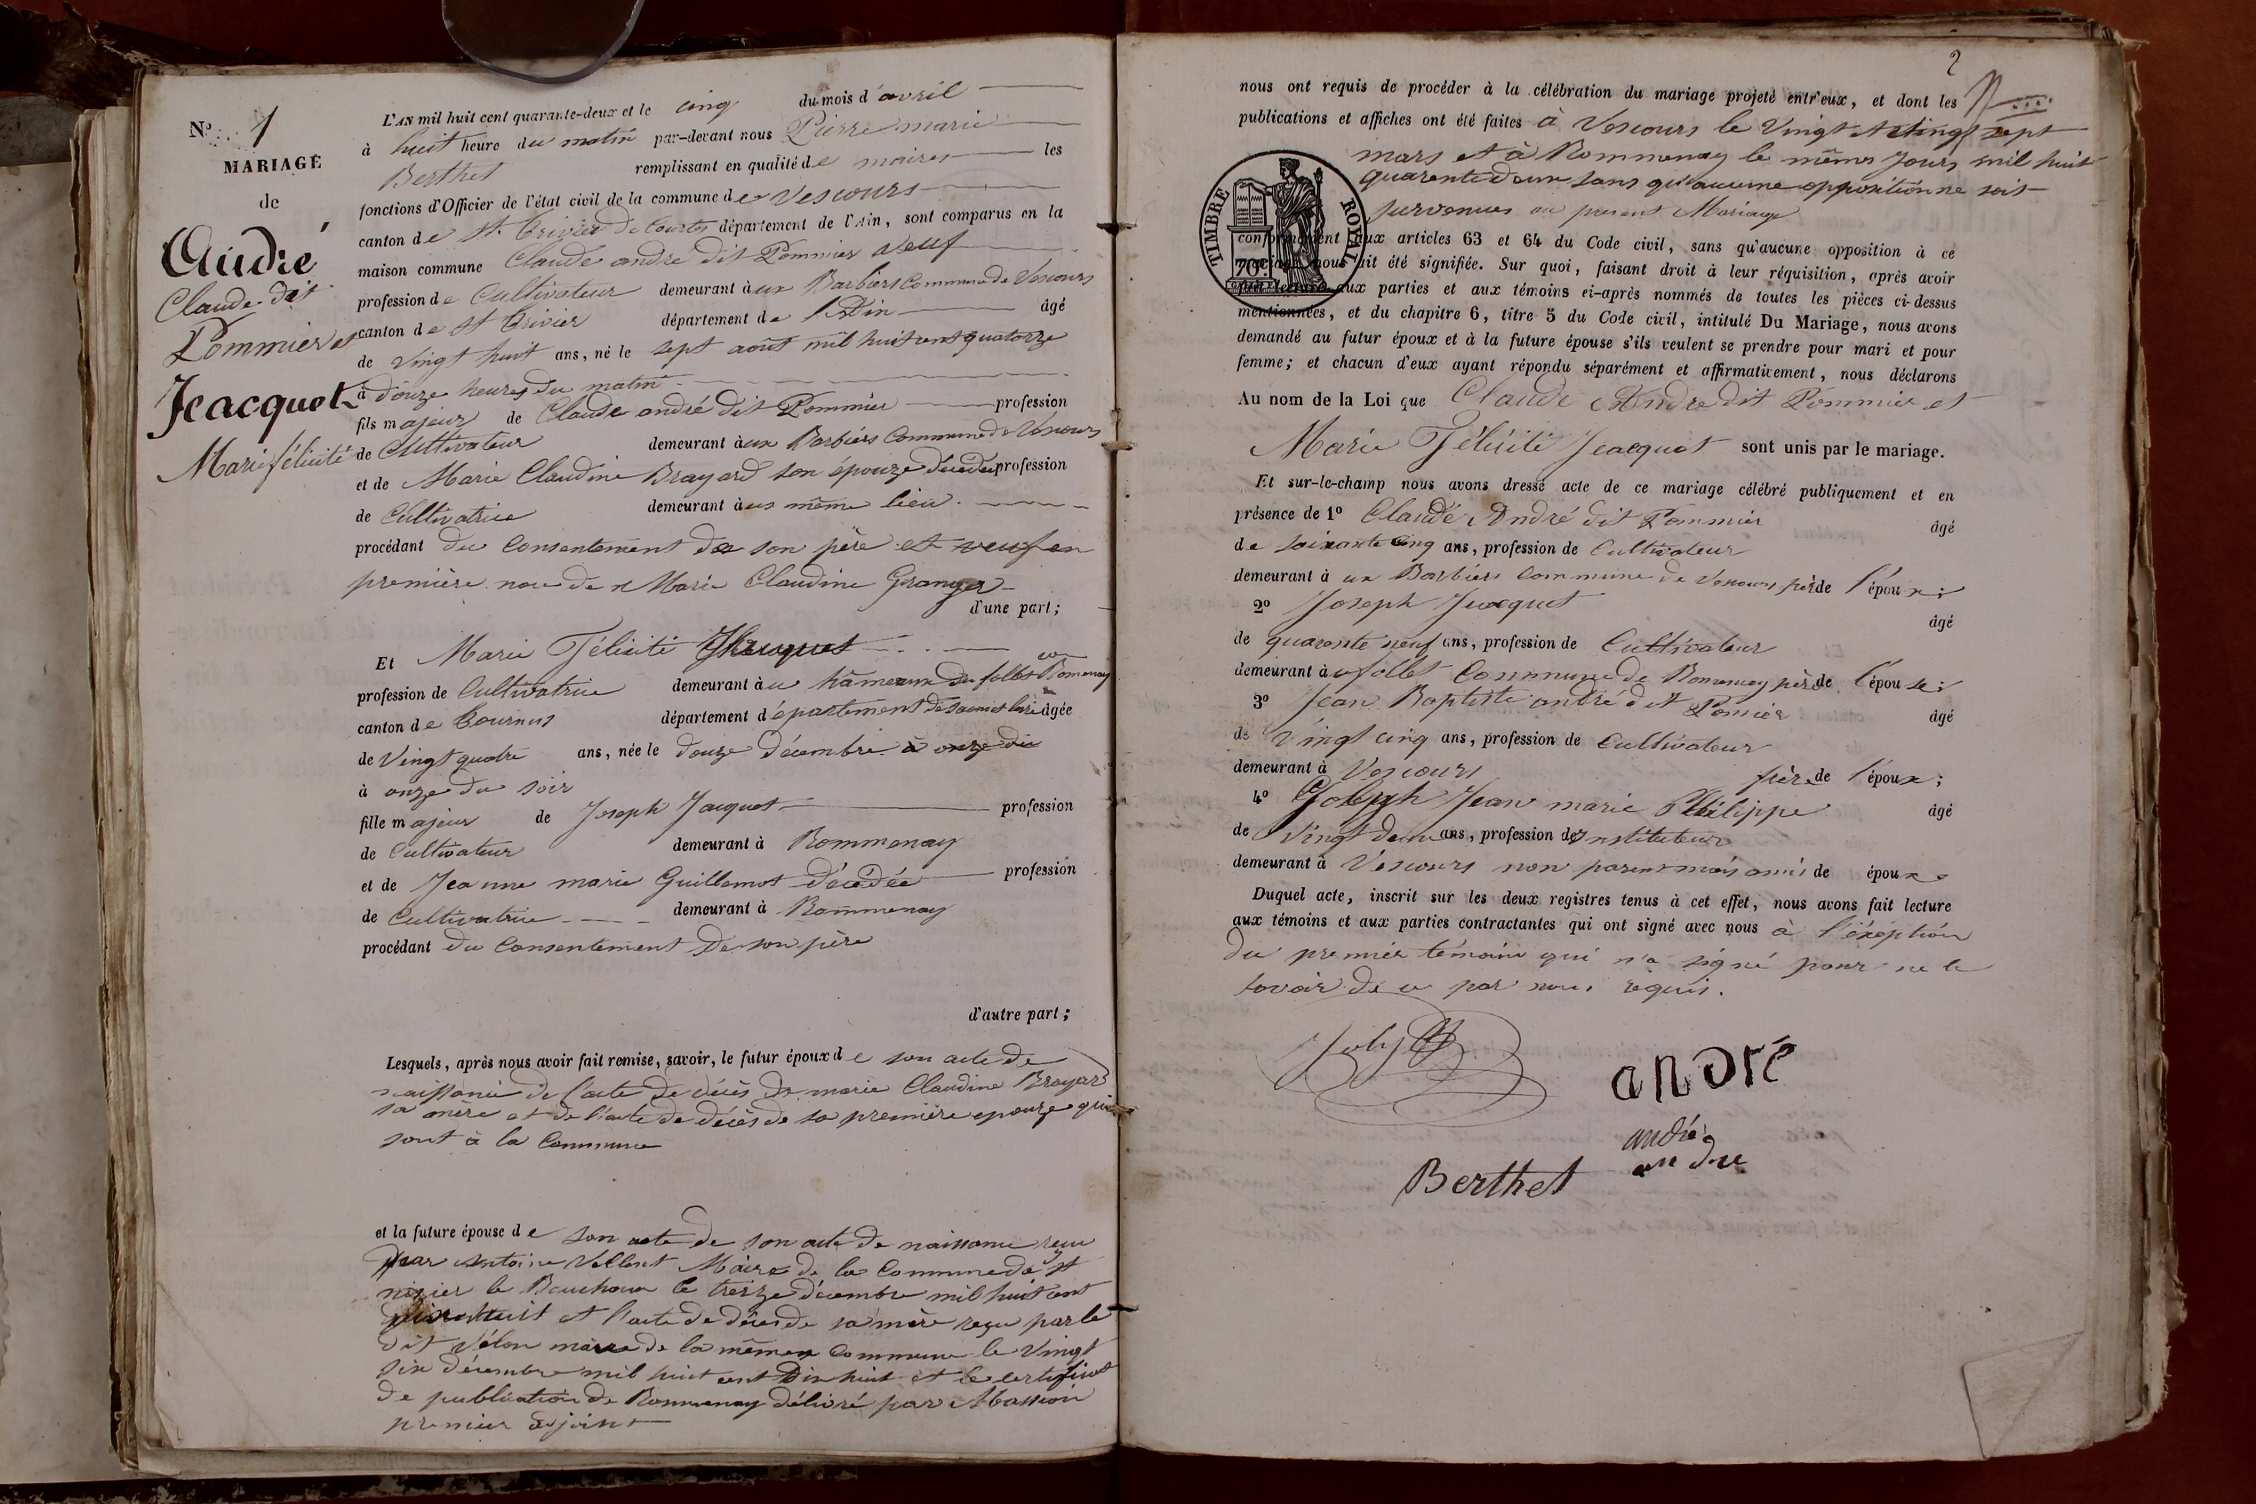 N° 1
MARIAGE
de
André
Claude dit
Pommier et
Jeacquet
Marie félicité
L'AN mil huit cent quarante-deux et le cinq du mois d'avril
à huit heure du matin par-devant nous Pierre marie
Berthet remplissant en qualité de maire les
fonctions d'Officier de l'état civil de la commune de Vescours
canton de St. Trivier de Courtes département de l'Ain, sont comparus en la
maison commune Claude andre dit Pommier veuf
profession de Cultivateur demeurant à ux Barbiers Commune de Vescours
canton de St Trivier département de l'Ain âgé
de vingt huit ans, né le sept août mil huit cent quatorze
à douze heures du matin
fils majeur de Claude andré dit Pommier profession
de Cultivateur demeurant à ux Barbiers Commune de Vescours
et de Marie Claudine Brayard son épouze décédée profession
de Cultivatrice demeurant à us même lieu
procédant du Consentement de son père et veuf en
première noce de Marie Claudine Granger
d'une part;
Et Marie Félicité Jeacquet
profession de Cultivatrice demeurant à u hameaux du follet Romenay
canton de Tournus département département de Saone et Loire âgée
de Vingt quatre ans, née le douze décembre à onze du
à onze du soir
fille majeur de Joseph Jacquet profession
de Cultivateur demeurant à Rommenay
et de Jeanne marie Guillemot décédée profession
de Cultivatrice demeurant à Rommenay
procédant du Consentement de son père
d'autre part;
Lesquels, après nous avoir fait remise, savoir, le futur époux de son acte de
naissance de l'acte de décès de marie Claudine Brayard
sa mère et de l'acte de décès de sa première epouze qui
sont à la Commune
et la future épouse de son acte de son acte de naissance reçu
par Antoine Maire de la Commune de St
nizier le Bouchoux le treize décembre mil huit cent
dix huit et l'acte de décès de sa mère reçu par le
dit maire de la même Commune le Vingt
six décembre mil huit cent Dix huit et le certificat
de publication de Rommenay délivré par Massion
premier adjoint
2
nous ont requis de procéder à la célébration du mariage projeté entr'eux, et dont les
publications et affiches ont été faites à Vescours le Vingt et Vingt sept
mars et à Rommenay le même Jours mil huit
quarente deux sans qu'aucune opposition ne soit
survenues au present Mariage
TIMBRE ROYAL
70c
conformément aux articles 63 et 64 du Code civil, sans qu'aucune opposition à ce
mariage nous ait été signifiée. Sur quoi, faisant droit à leur réquisition, après avoir
fait lecture aux parties et aux témoins ci-après nommés de toutes les pièces ci-dessus
mentionnées, et du chapitre 6, titre 5 du Code civil, intitulé Du Mariage, nous avons
demandé au futur époux et à la future épouse s'ils veulent se prendre pour mari et pour
femme; et chacun d'eux ayant répondu séparément et affirmativement, nous déclarons
Au nom de la Loi que Claude Andre dit Pommier et
Marie Félicité Jeacquet sont unis par le mariage.
Et sur-le-champ nous avons dressé acte de ce mariage célébré publiquement et en
présence de 1° Claude André dit Pommier âgé
de soixante cinq ans, profession de Cultivateur
demeurant à ux Barbiers Commune de Vescours père de l'époux;
2° Joseph Jeacquet âgé
de quarante neuf ans, profession de Cultivateur
demeurant à u follet Commune de Romenay père de l'épouse;
3° Jean Baptiste andré dit Pomier âgé
de Vingt cinq ans, profession de Cultivateur
demeurant à Vescours frère de l'époux;
4° Joseph Jean marie Philippe âgé
de Vingt deux ans, profession de Instituteur
demeurant à Vescours non parent mais amis de époux
Duquel acte, inscrit sur les deux registres tenus à cet effet, nous avons fait lecture
aux témoins et aux parties contractantes qui ont signé avec nous à l'éxeption
du premier témoin qui n'a signé pour ne le
savoir de ce par nous requis.
andré
andré
andre
Berthet